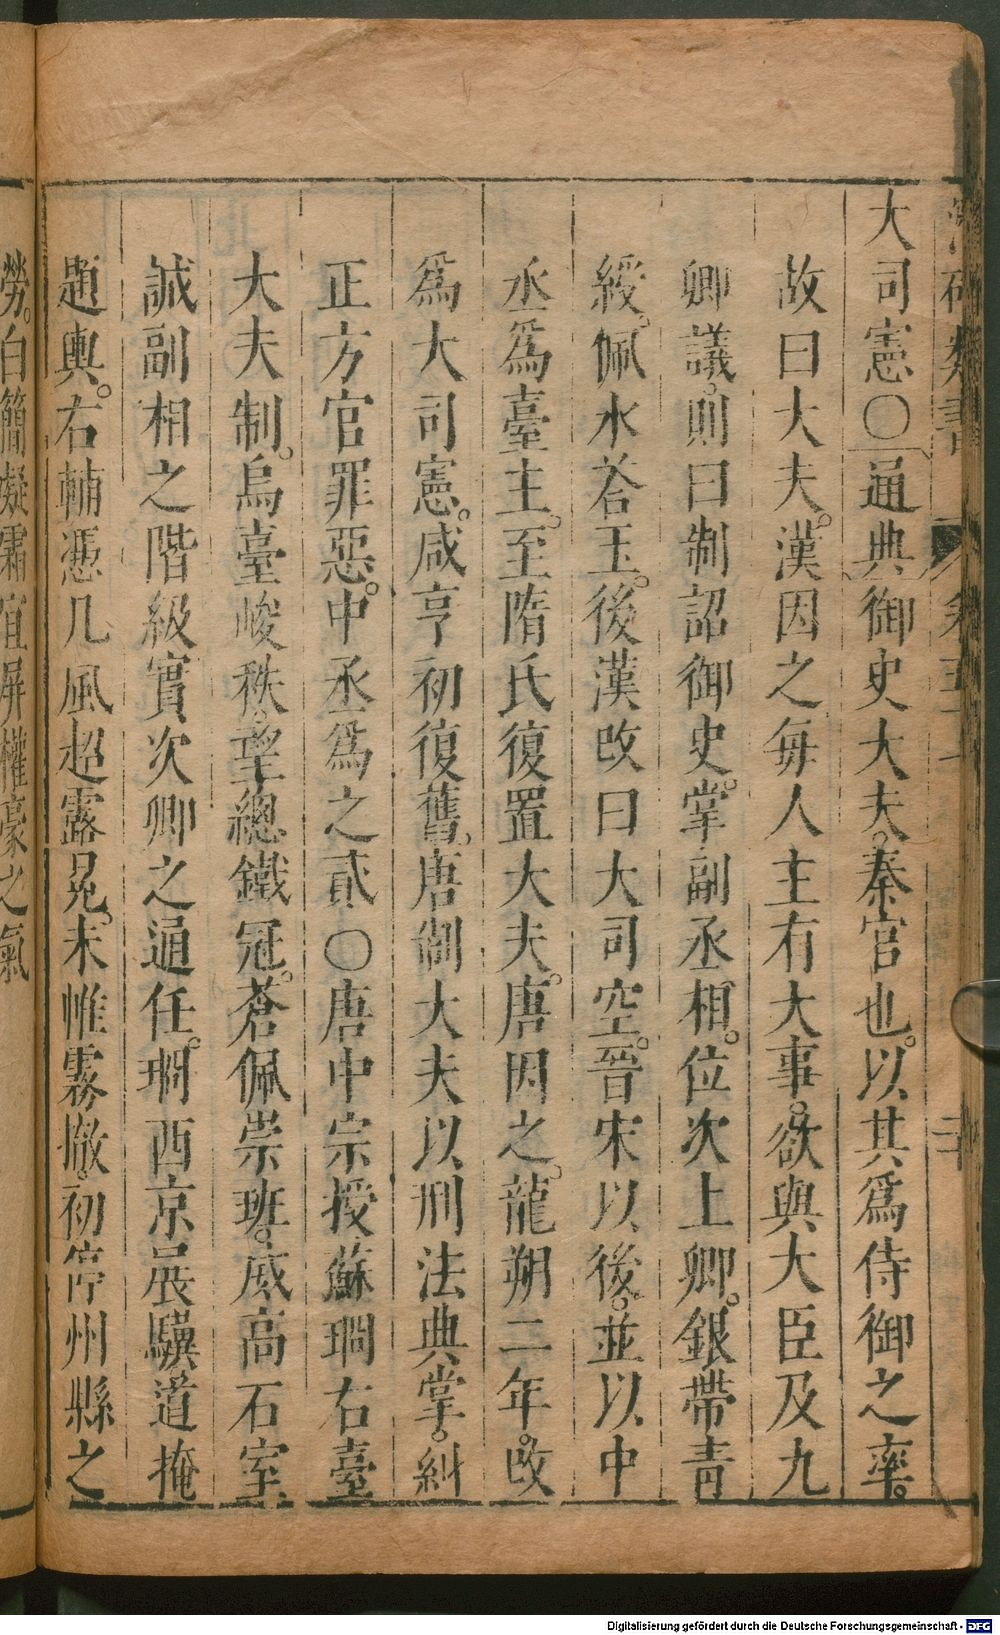 大司憲○通典御史大夫。秦官也。以其爲侍御之率。
故曰大夫。漢因之每人主有大事。欲與大臣及九
卿議。則曰制詔御史。掌副丞相。位次上卿。銀帶青
綬。佩水蒼玉。後漢改曰大司空。晉宋以後。並以中
丞爲臺主。至隋氏復置大夫。唐因之。龍朔二年。改
爲大司憲。咸亨初復舊。唐制大夫以刑法典掌。糾
正百官罪惡。中丞爲之貳○唐中宗授蘇珦右臺
大夫制。烏臺峻秩。望總鐵冠。蒼佩崇班。威高石室
誠副相之階級實次卿之通任。珦西京展驥道掩
題輿。右輔憑几風超露晃。末惟霧撤。初宁州縣之
勞。白簡凝霜宜屏權豪之氣
Digitalisierung gefördert durch die Deutsche Forschungsgemeinschaft - DFG